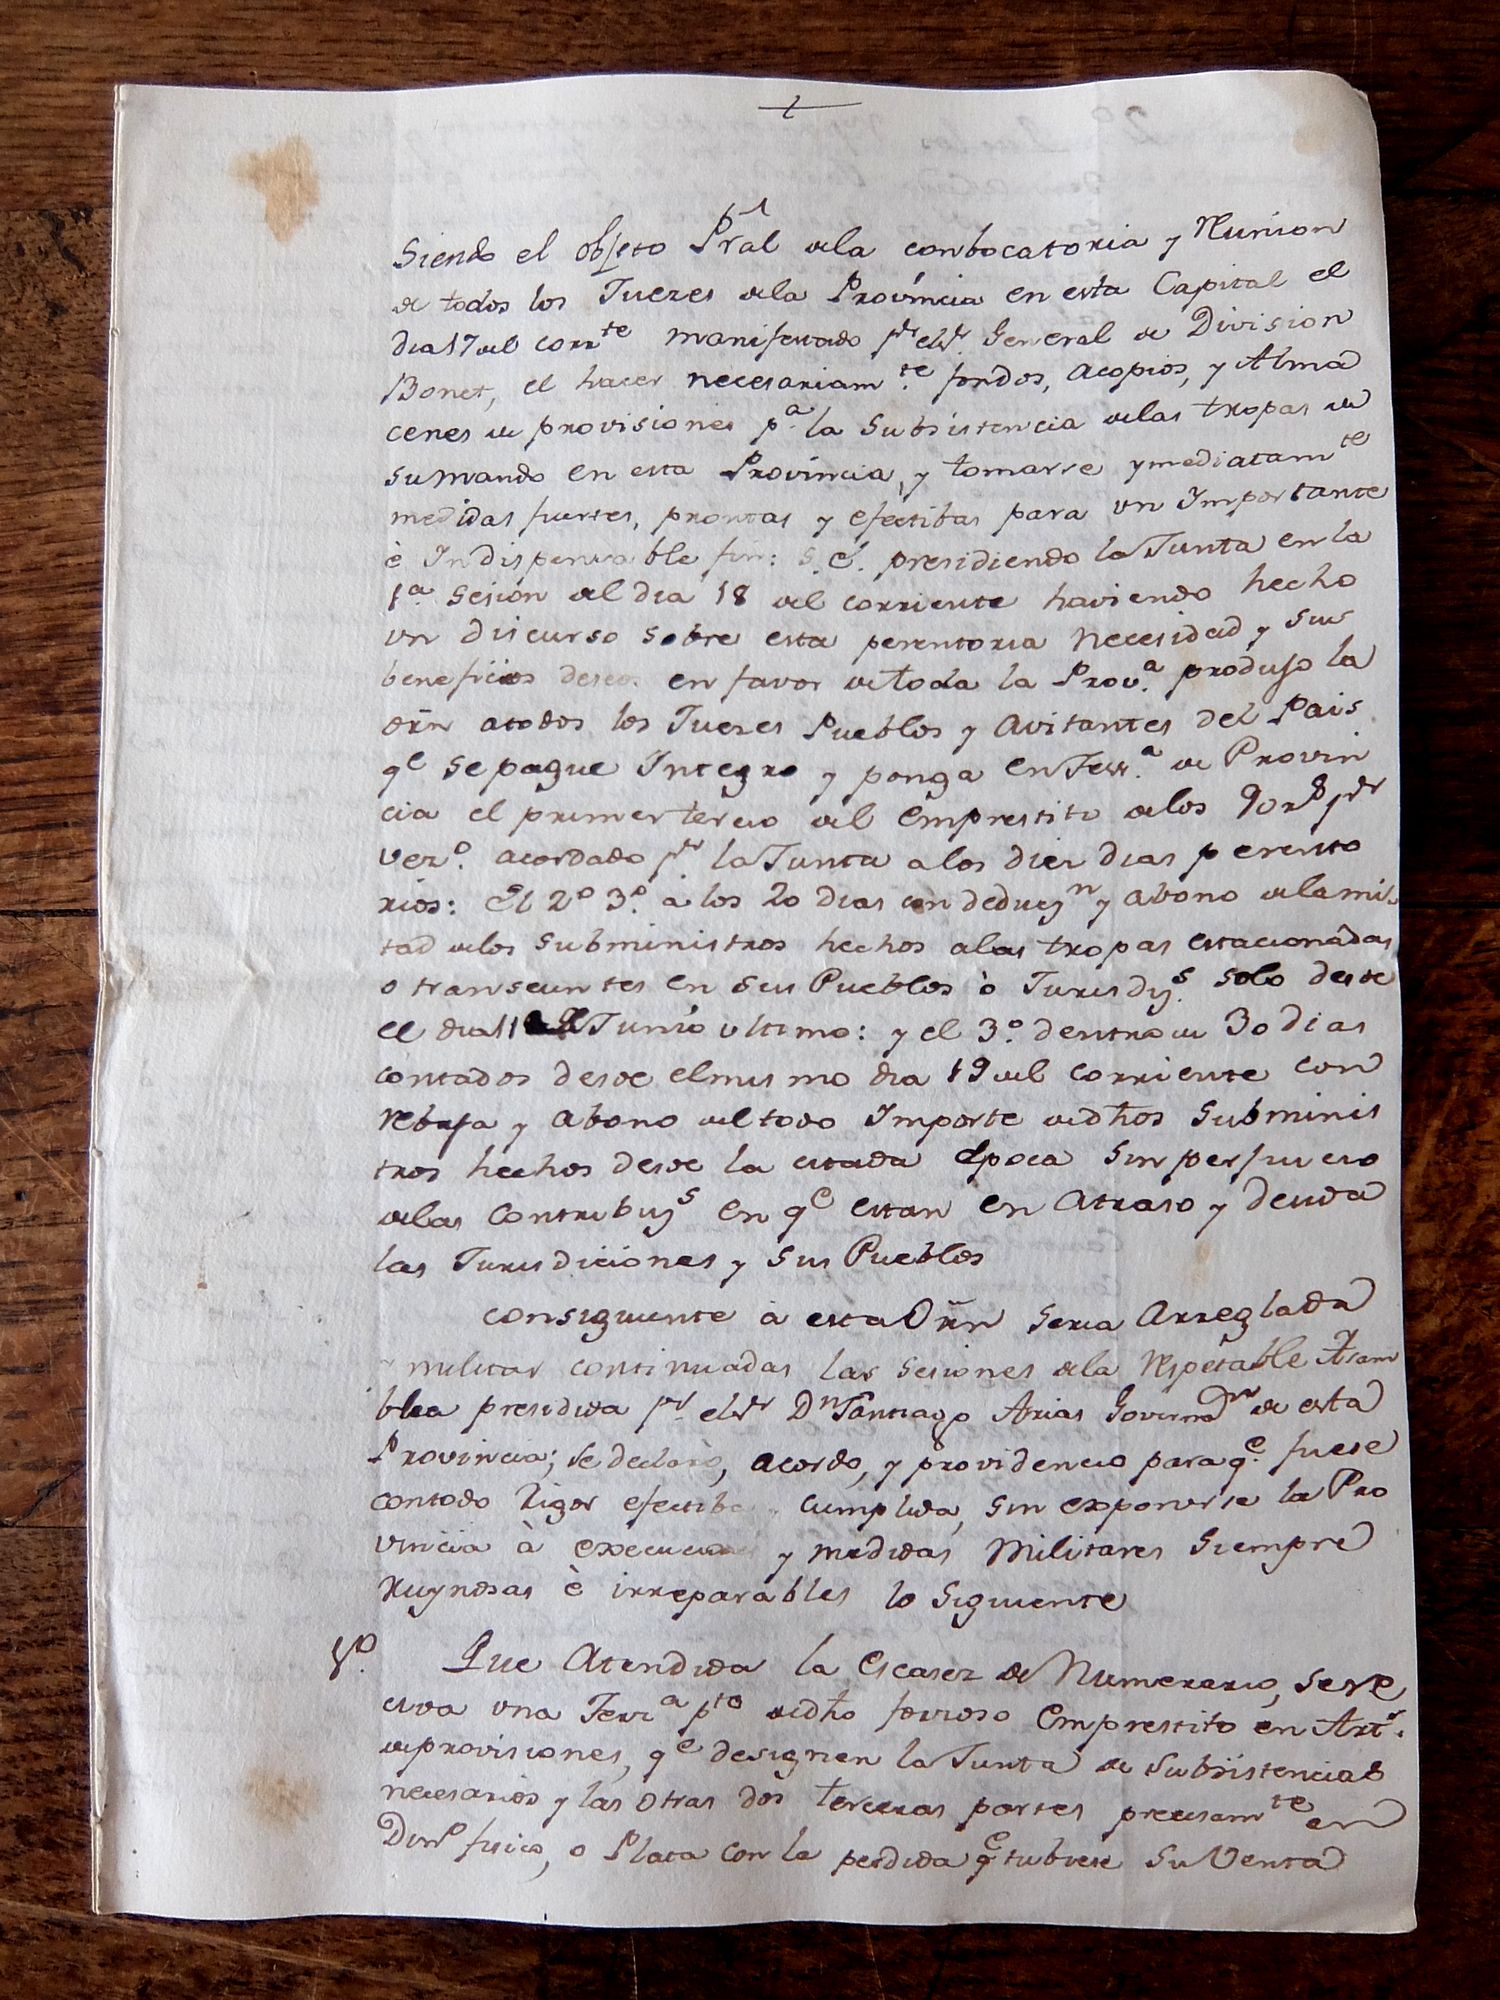 Siendo el objeto Pral dela combocatoria y reunion
de todos los Jueces dela Provincia en esta Capital el
dia 17 del corrte manifestado pr elSr. General de Division
Bonet, el hacer necesariamte. fondos, acopios, y Alma
cenes de provisiones pa. la Subsistencia delas tropas de
su mando en esta Provincia, y tomarse ymediatamte
medidas fuertes, prontas y efectibas para un Importante
è Indispensable fin: S. E. presidiendo la Junta en la
1a. Sesion del dia 18 del corriente haviendo hecho
un discurso sobre esta perentoria necesidad y sus
beneficos deseos en favor de toda la Prova. produjo la
orñ atodos los Jueces Pueblos y avitantes del Pais
qe se pague Integro y ponga en Tesra. de Provin
cia el primer tercio del emprestito delos
vezo. acordado pr. la Junta alos diez dias perento
rios: El 2o 3o. a los 20 dias con deduczn y abono dela mi
tad delos Subministros hechos alas tropas estacionadas
o transeuntes en sus Pueblos ò Jurisdizs. solo desde
el dia 1 Junio ultimo: y el 3o. dentro de 30 dias
contados desde el mismo dia 19 del corriente con
rebaja y abono del todo Importe dedhos Subminis
tros hechos desde la citada epoca sin perjuicio
delas Contribuzs en qe estan en atraso y deuda
las Jurisdiciones y sus Pueblos
Consiguiente à esta Orñ seria Arreglada
militar continuadas las sesiones dela respetable Asam
blea presidida pr. elSr Dn Santiago Arias Governdor de esta
Provincia; se declarò, acordo, y providencio para qe. fuese
contodo rigor efectiba y cumplida, sin exponerse la Pro
vincia à execuciones y medidas Militares siempre
ruynosas è irreparables lo siguiente
1o. Que Atendida la escasez de Numerario, se re
civa una Terza pte dedho forzoso Emprestito en Arts.
deprovisiones, qe designen la Junta de Subsistencias
necesarios y las otras dos terceras partes precisamte en
Dino fisico, o Plata con la perdida qe tubiese su Venta